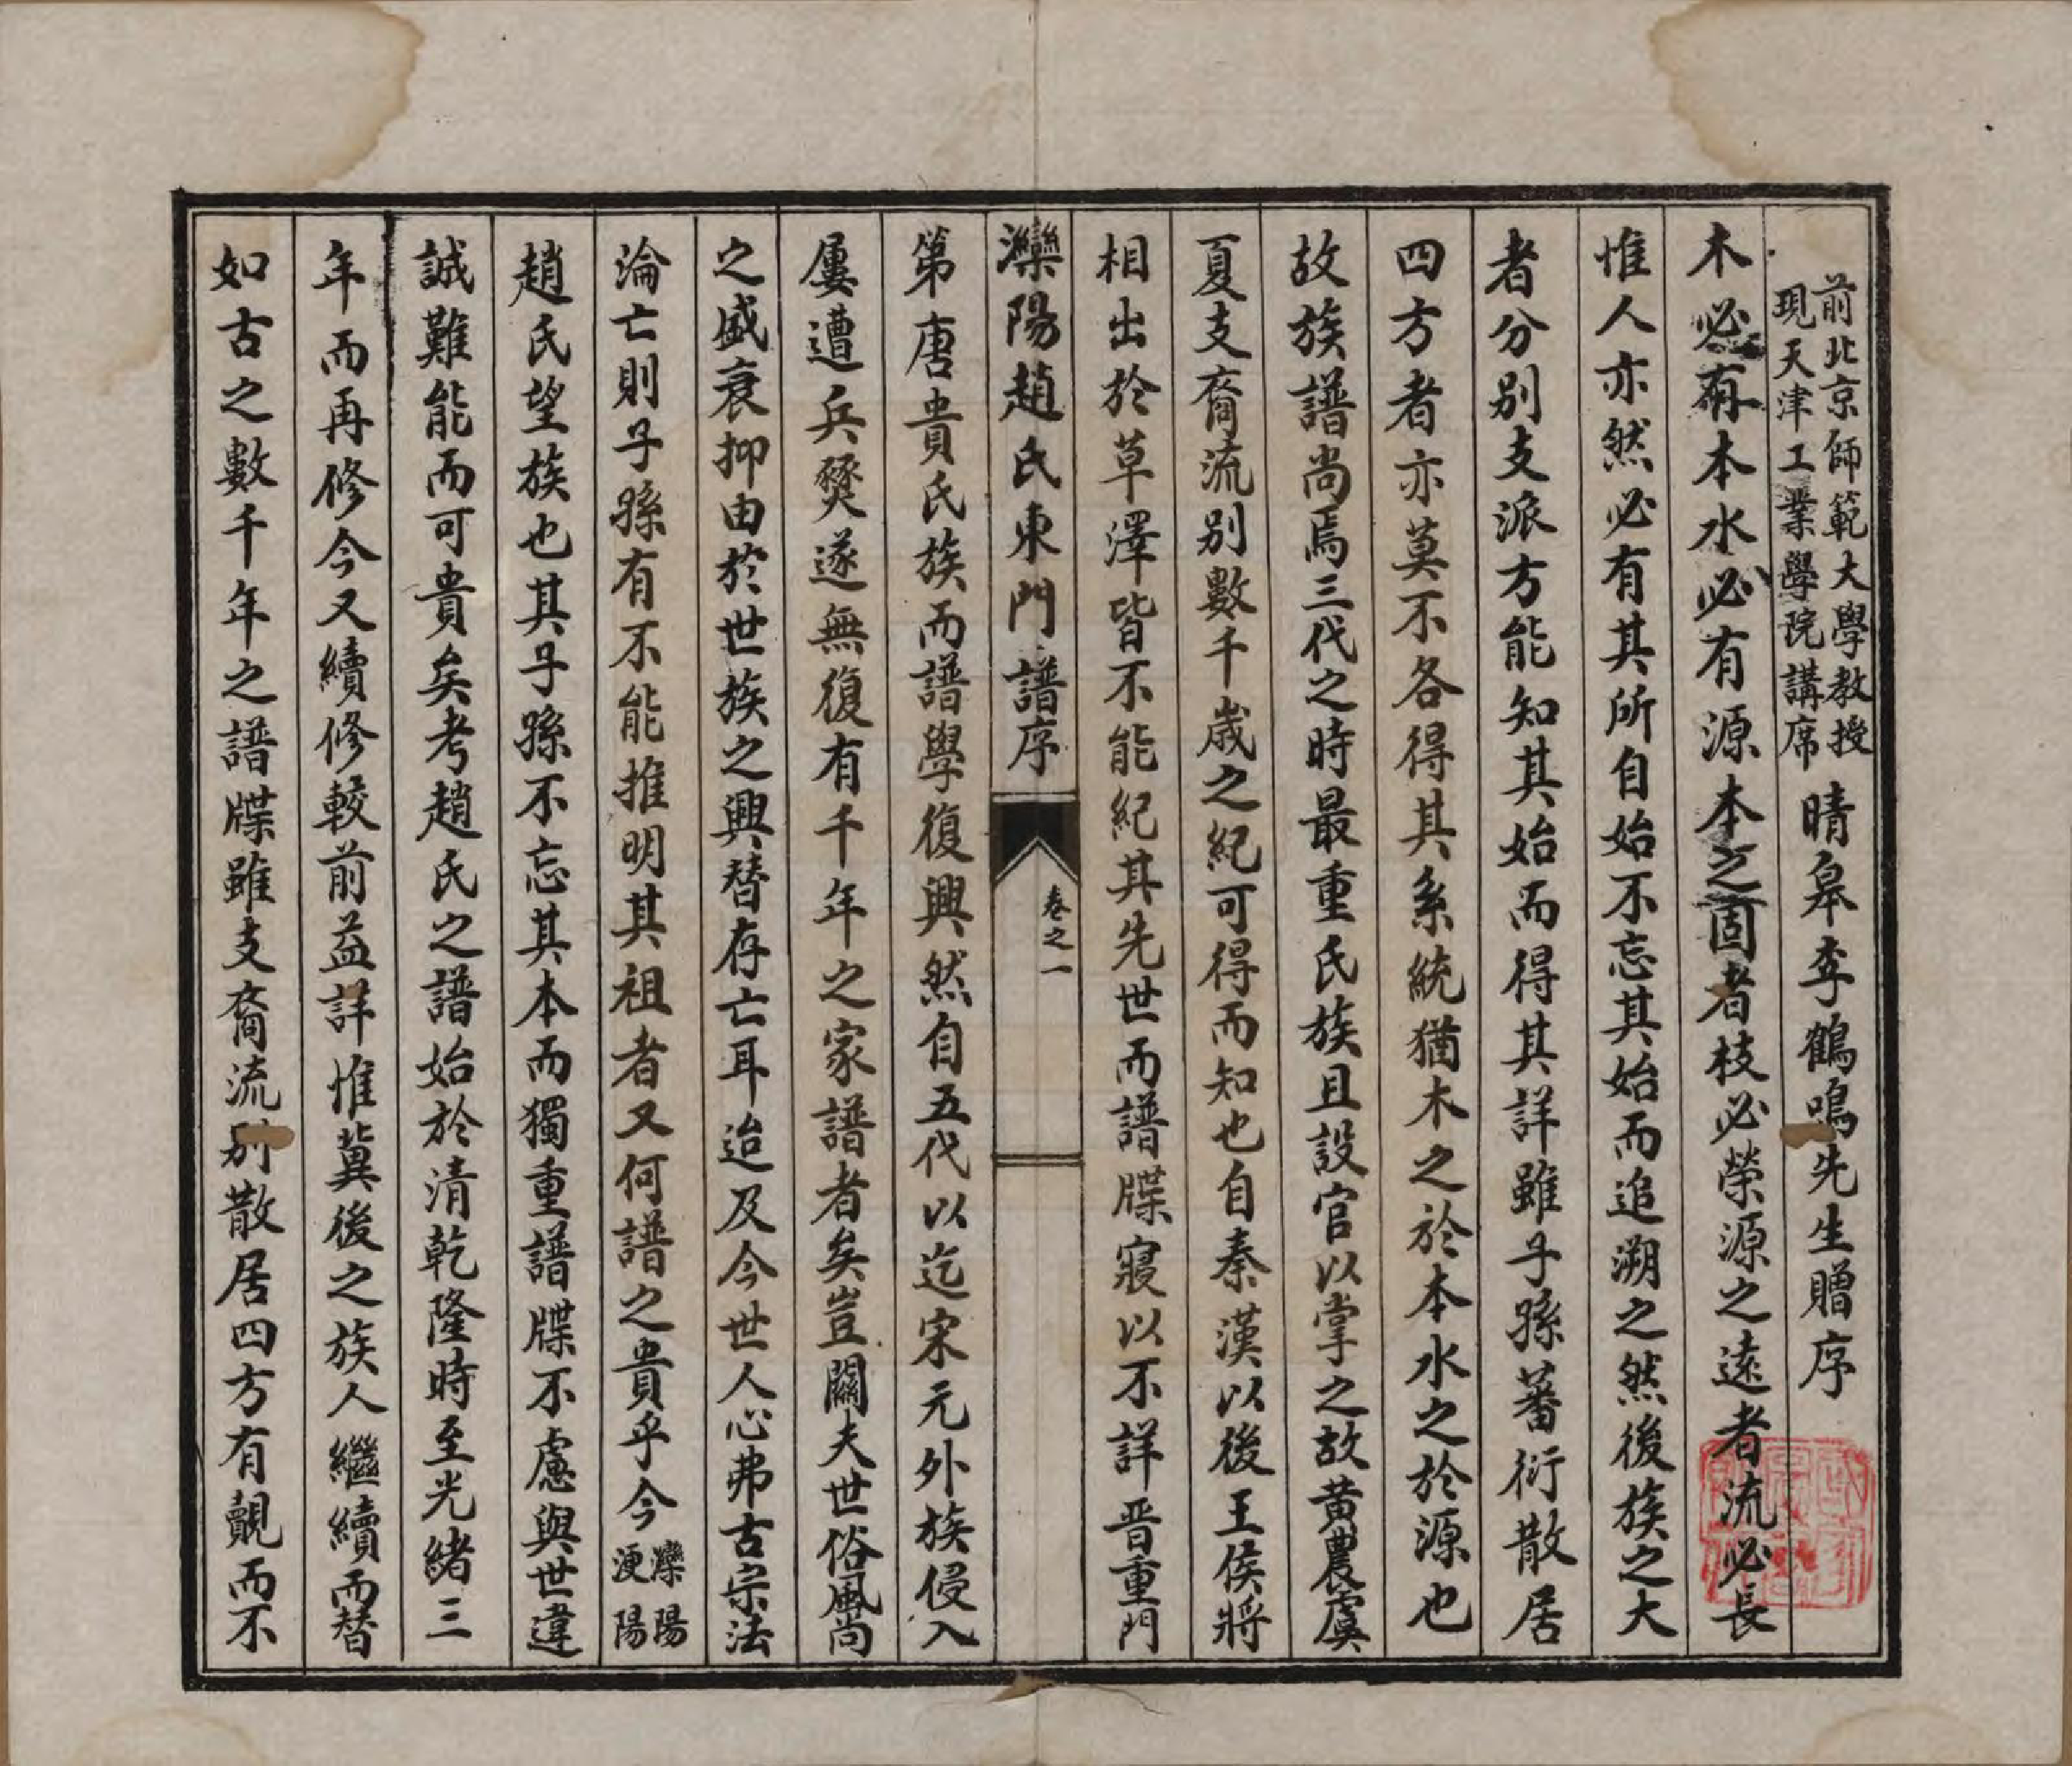 前北京師範大學教授
現天津工業學院講席
晴皋李鶴鳴先生贈序
木必有本水必有源本之固者枝必榮源之遠者流必長
惟人亦然必有其所自始不忘其始而追溯之然後族之大
者分別支派方能知其始而得其詳雖子孫蕃衍散居
四方者亦莫不各得其系統猶木之於本水之於源也
故族譜尚焉三代之時最重氏族且設官以掌之故黃農虞
夏支裔流別數千歲之紀可得而知也自秦漢以後王侯將
相出於草澤皆不能紀其先世而譜牒寢以不詳晉重門
灤陽趙氏東門譜序
卷之一
第唐貴氏族而譜學復興然自五代以迄宋元外族侵入
屢遭兵燹遂無復有千年之家譜者矣豈關夫世俗風尚
之盛衰抑由於世族之興替存亡耳迨及今世人心弗古宗法
淪亡則子孫有不能推明其祖者又何譜之貴乎今灤陽浭陽
趙氏望族也其子孫不忘其本而獨重譜牒不慮與世違
誠難能而可貴矣考趙氏之譜始於清乾隆時至光緒三
年而再修今又續修較前益詳惟冀後之族人繼續而替
如古之數千年之譜牒雖支裔流別散居四方有覯而不